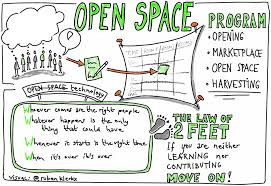 OPEN SPACE
PROGRAM
• OPENING
• MARKETPLACE
• OPEN SPACE
• HARVESTING
OPEN SPACE technology
Whoever comes are the right people
Whatever happens is the only
thing that could have
Whenever it starts is the right time
When it's over it's over
THE LAW OF
2 FEET
If you are neither
LEARNING nor
CONTRIBUTING
MOVE ON!